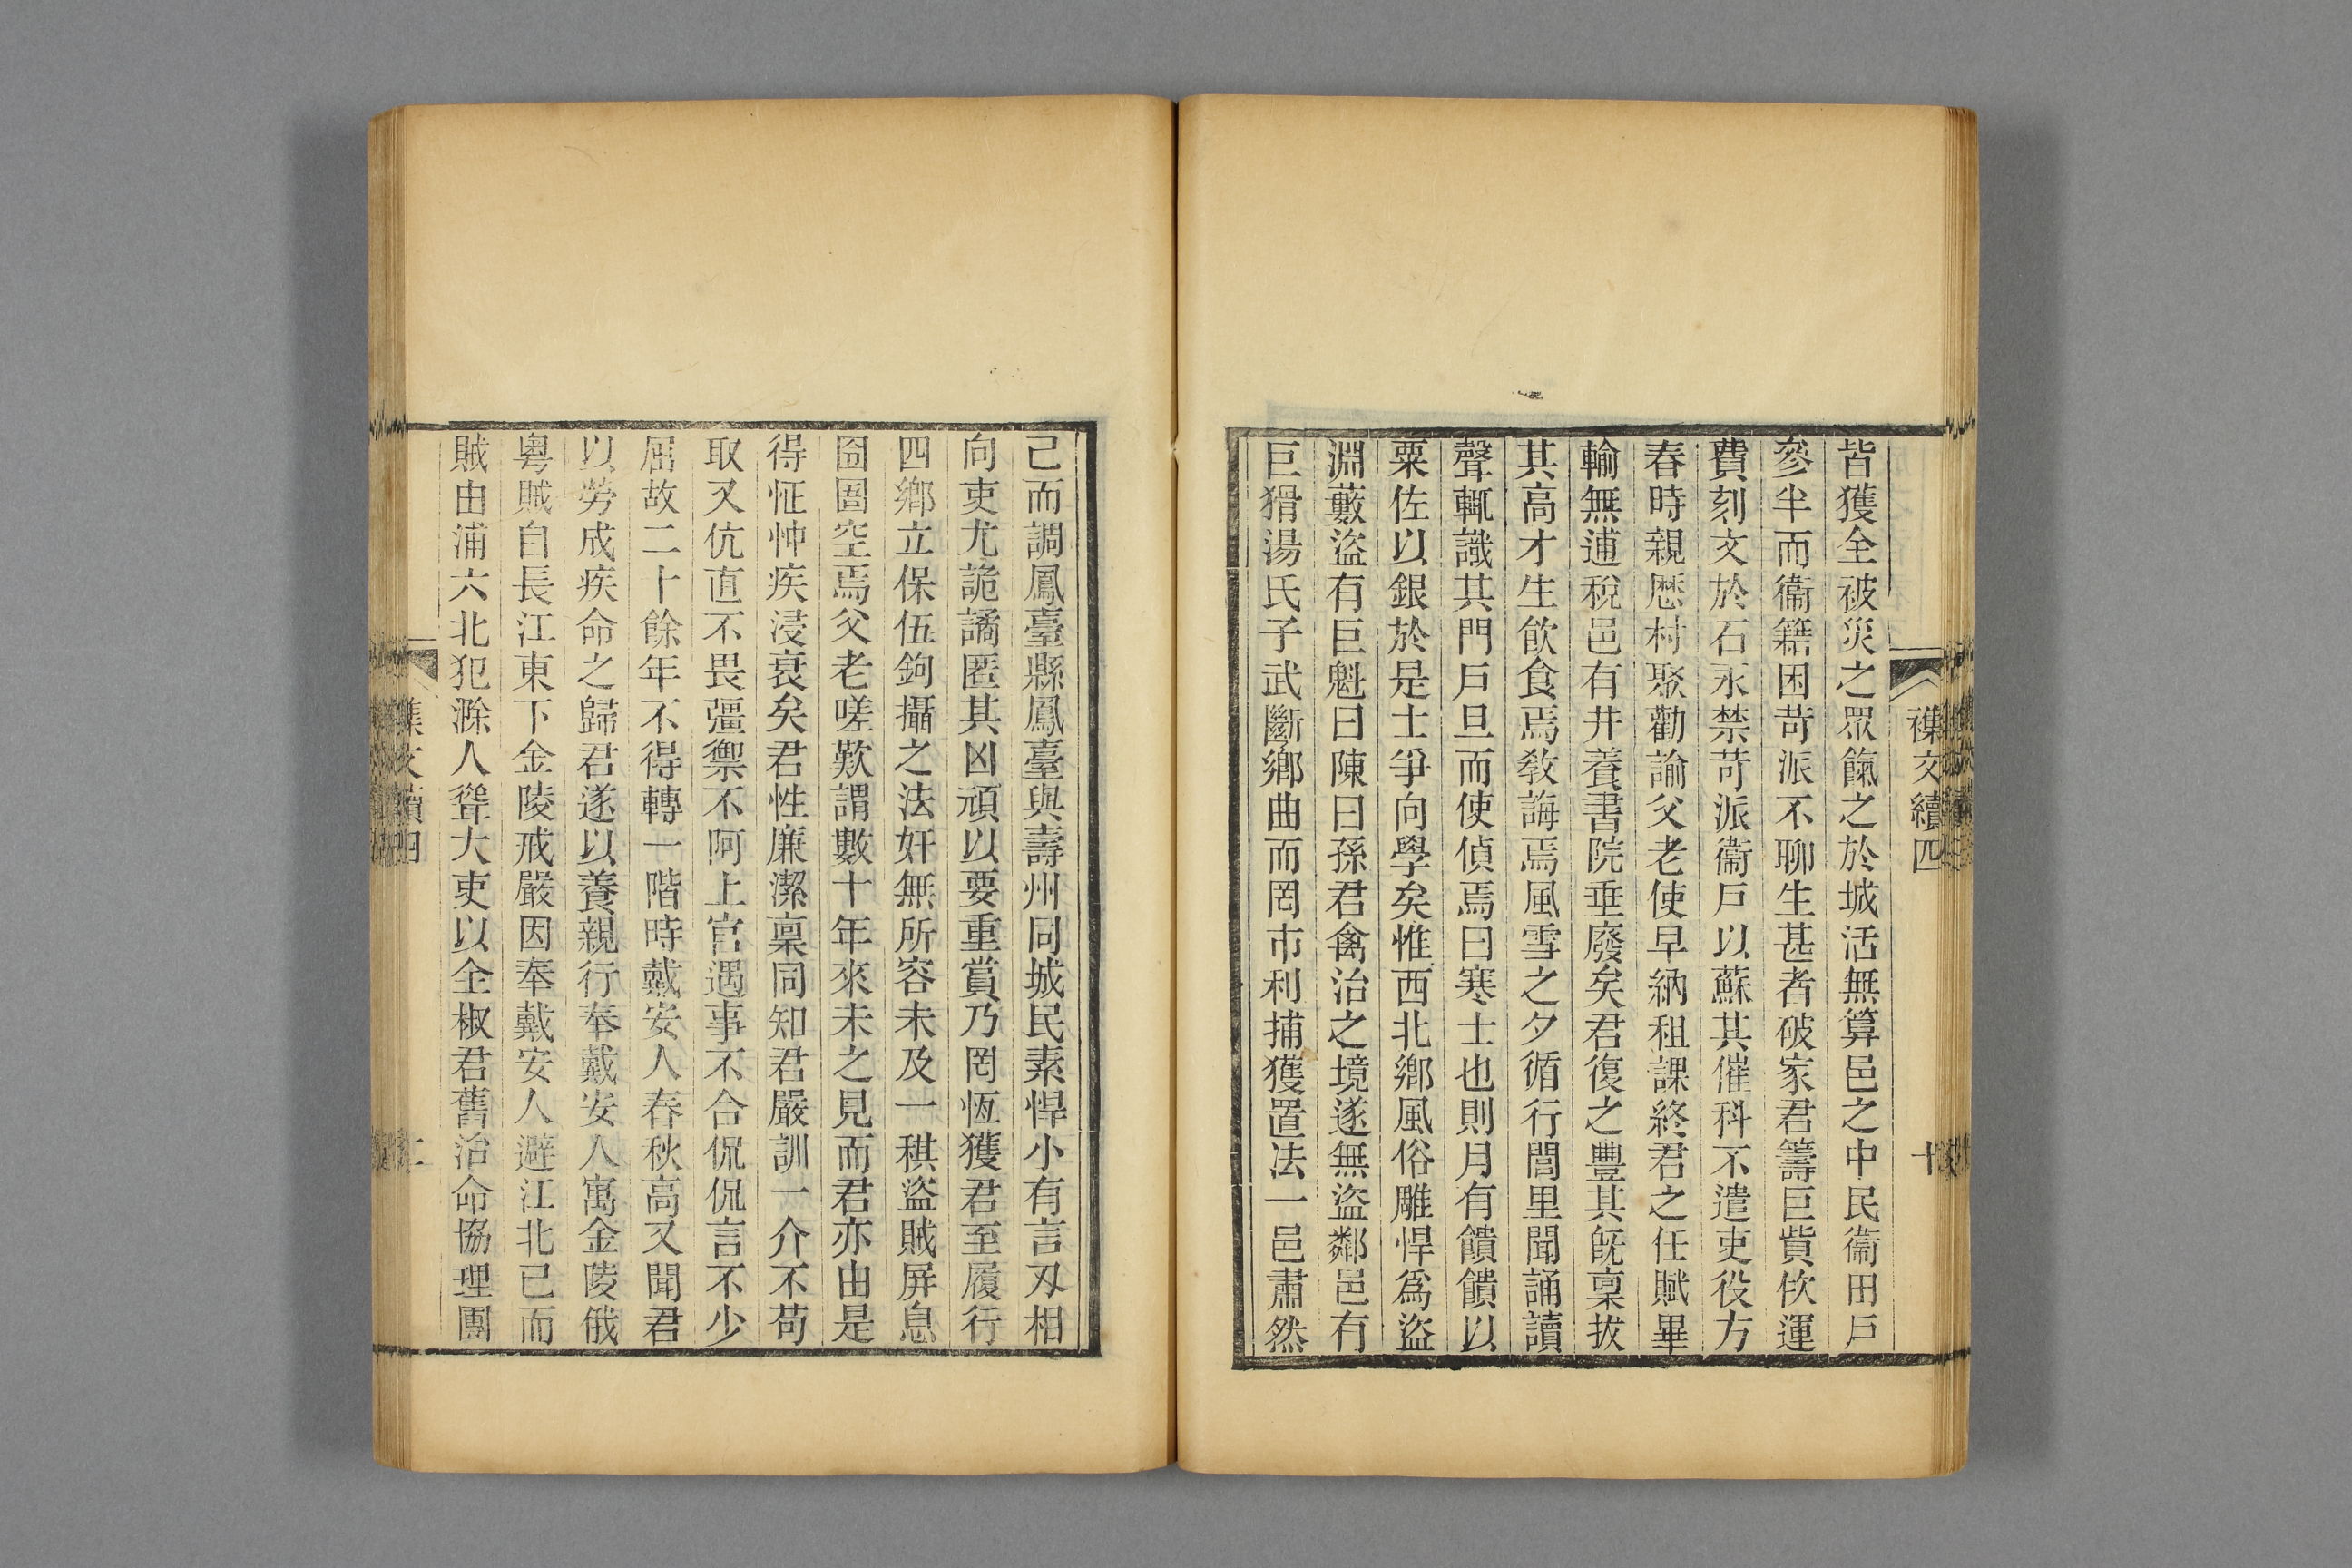 襍文續四
十
皆獲全被災之眾餼之於城活無算邑之中民衞田戶
參半而衞籍困苛派不聊生甚者破家君籌巨貲佽運
費刻文於石永禁苛派衞戶以蘇其催科不遣吏役方
春時親歷村聚勸諭父老使早納租課終君之任賦畢
輸無逋稅邑有井養書院垂廢矣君復之豐其旣稟拔
其高才生飮食焉敎誨焉風雪之夕循行閭里聞誦讀
聲輒識其門戶旦而使偵焉曰寒士也則月有饋饋以
粟佐以銀於是士爭向學矣惟西北鄉風俗雕悍爲盜
淵藪盜有巨魁曰陳曰孫君禽治之境遂無盜鄰邑有
巨猾湯氏子武斷鄉曲而罔市利捕獲置法一邑肅然
己而調鳳臺縣鳳臺與壽州同城民素悍小有言刄相
向吏尤詭譎匿其凶頑以要重賞乃罔恆獲君至履行
四鄉立保伍鉤攝之法奸無所容未及一稘盜賊屏息
囹圄空焉父老嗟歎謂數十年來未之見而君亦由是
得怔忡疾浸衰矣君性廉潔稟同知君嚴訓一介不苟
取又伉直不畏彊禦不阿上官遇事不合侃侃言不少
屈故二十餘年不得轉一階時戴安人春秋高又聞君
以勞成疾命之歸君遂以養親行奉戴安人寓金陵俄
粤賊自長江東下金陵戒嚴因奉戴安人避江北已而
賊由浦六北犯滁人聳大吏以全椒君舊治命協理團
文續四